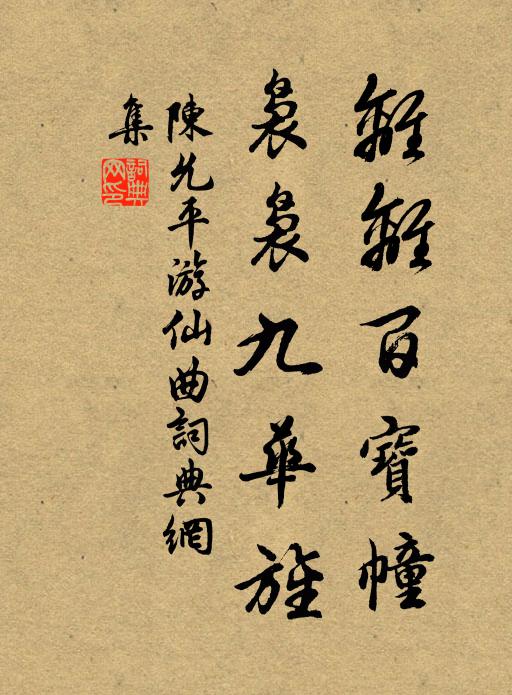 離離百寶幢
裊裊九華旌
陳允平游仙曲詞典網
集
詞典网印